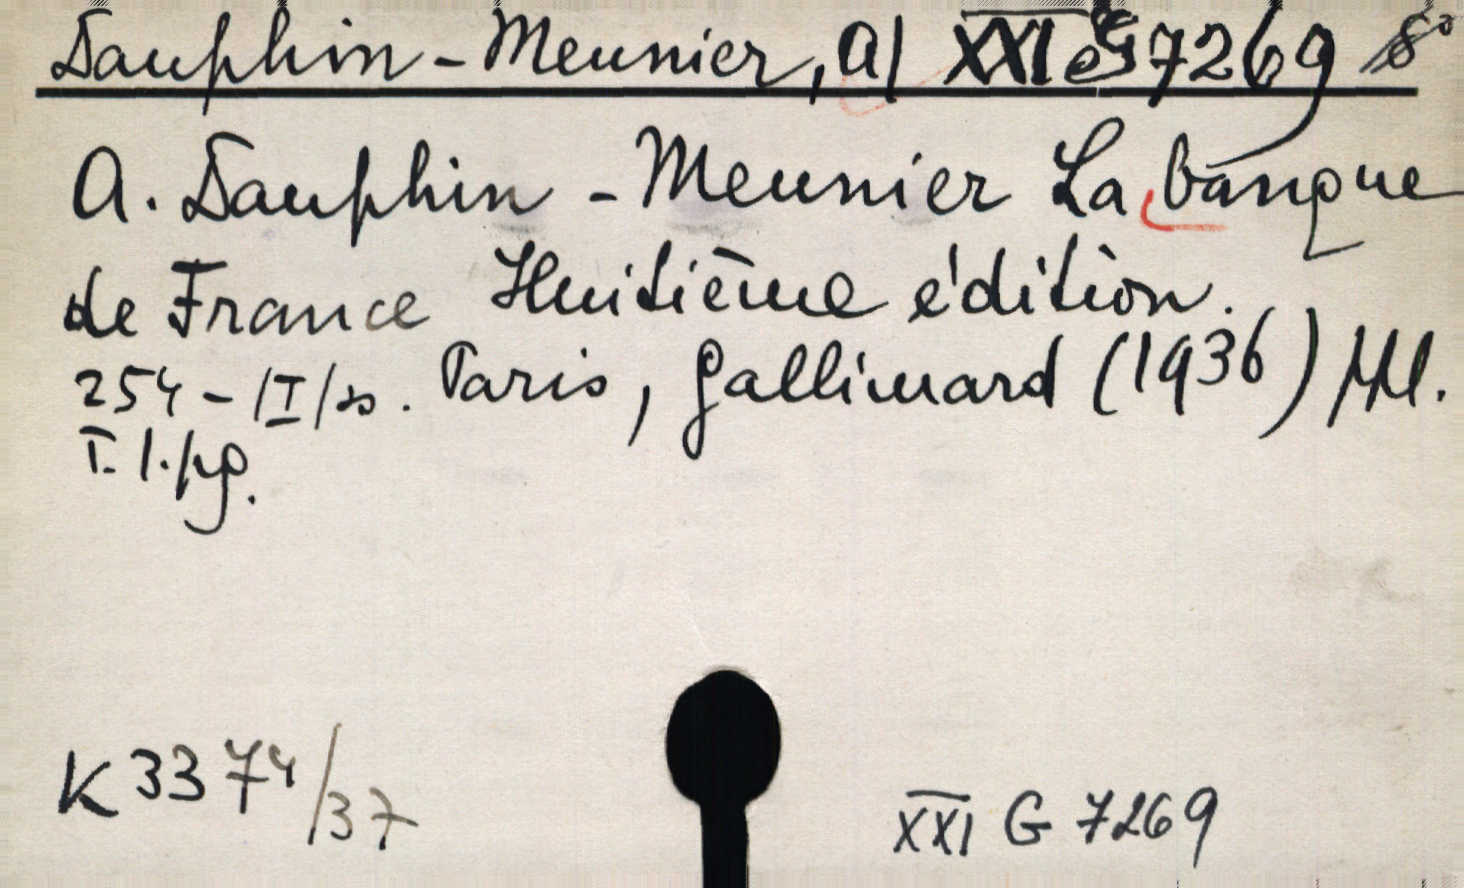 Dauphin-Meunier, A/ XXI G 7269 8°
A. Dauphin-Meunier La banque
de France Huitième édition.
254-/I/s. Paris, Gallimard (1936)
T. l./yg.
K 3374/37
XXI G 7269